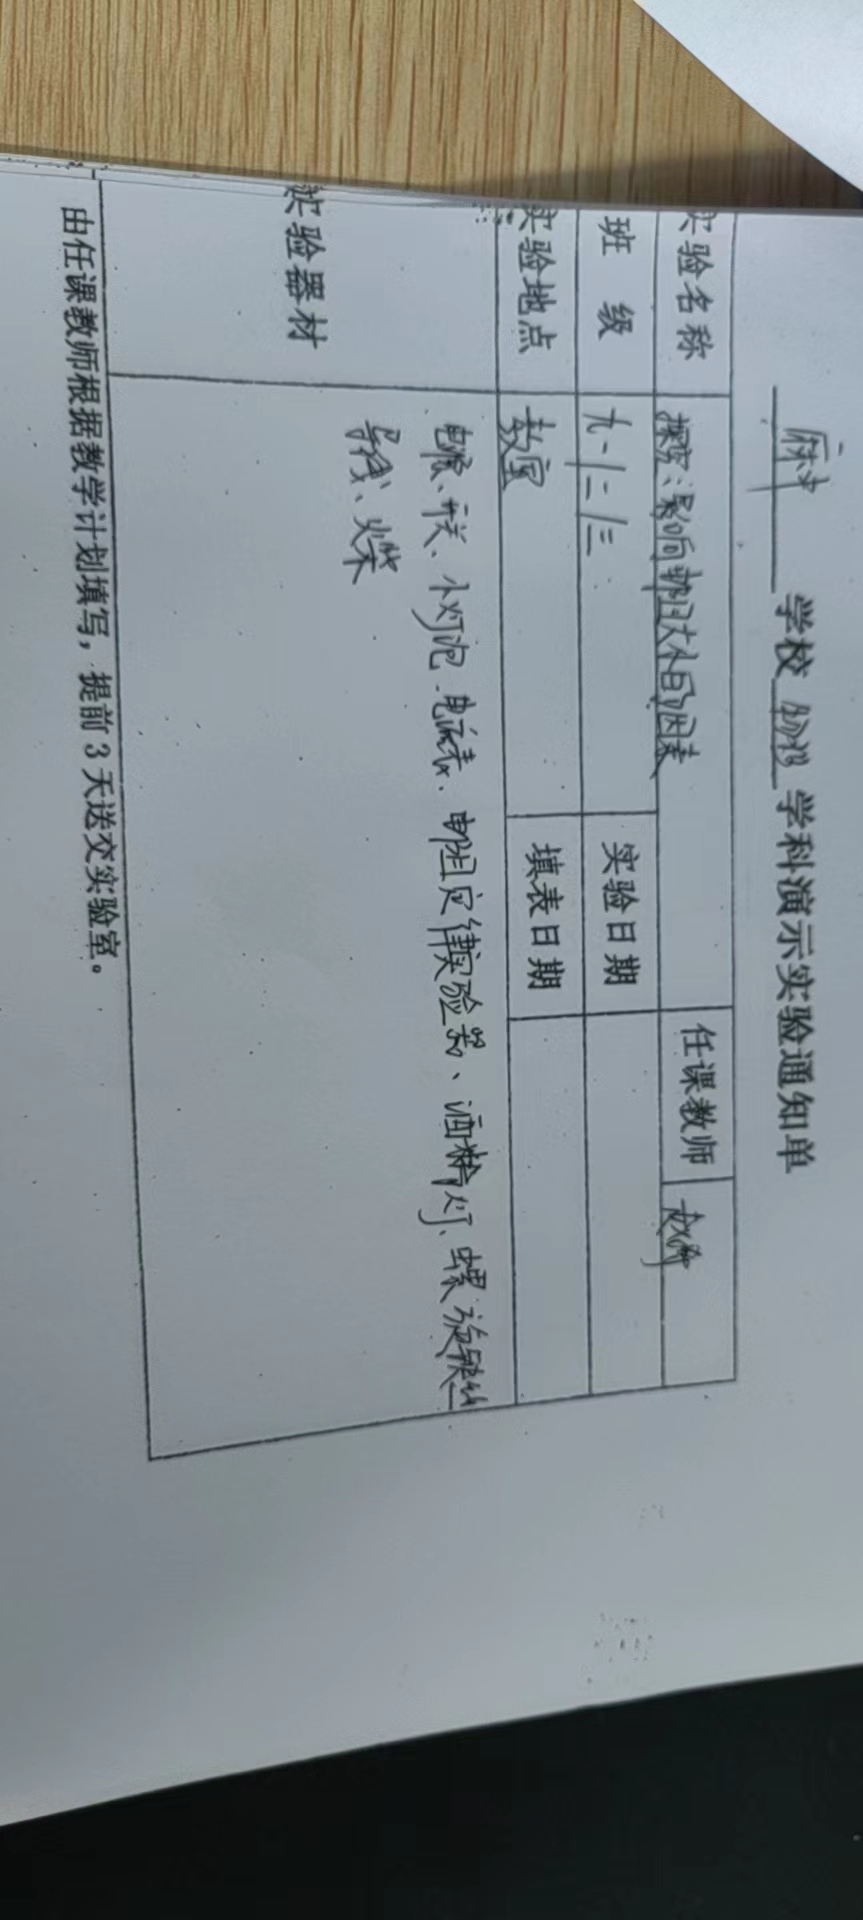 麻中 学校 物理 学科演示实验通知单
实验名称 探究：影响电阻大小的因素 任课教师
班 级 九·一/二/三 实验日期
实验地点 教室 填表日期
实验器材 电源、开关、小灯泡、电流表、电阻定律实验器、酒精灯、螺旋铁丝
导线、火柴
由任课教师根据教学计划填写，提前 3 天送交实验室。